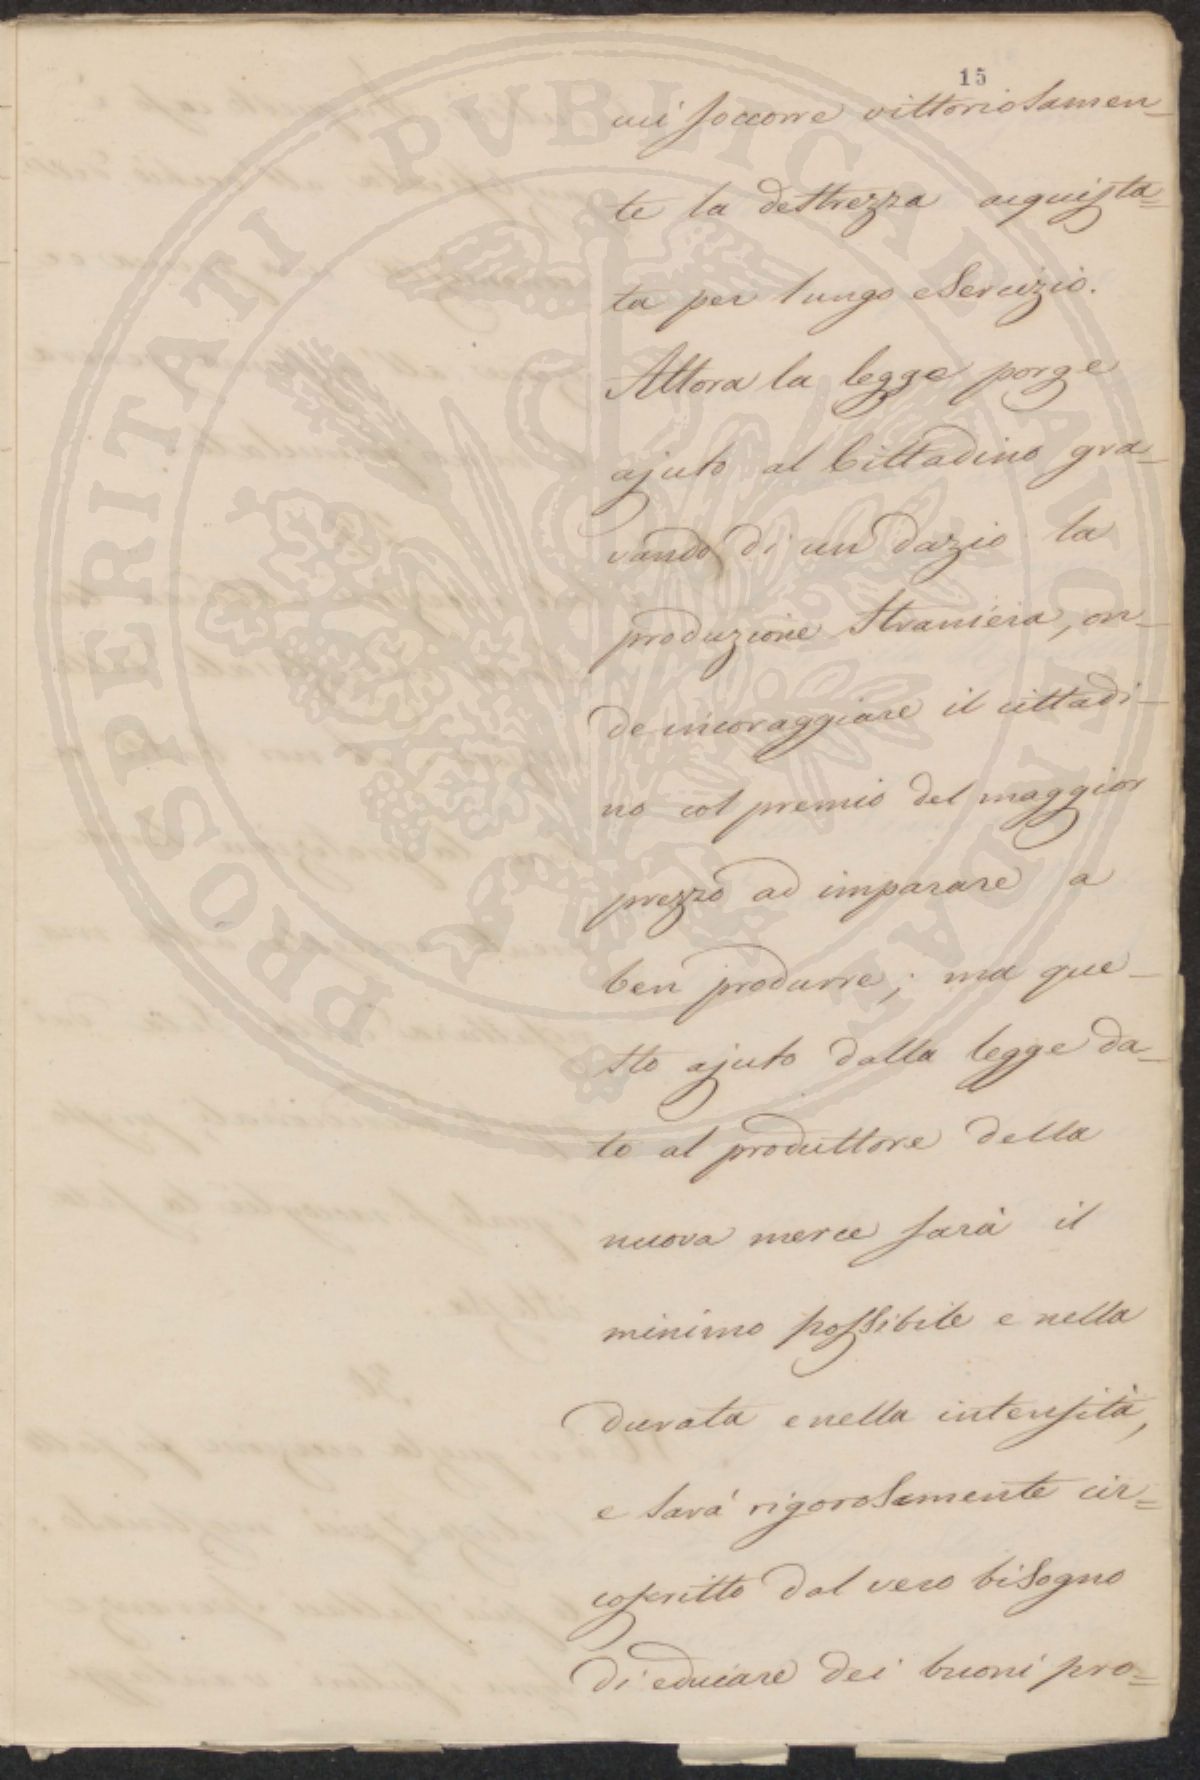 15
cui soccorre vittoriosamen-
te la destrezza acquista=
ta per lungo esercizio.
Allora la legge porge
ajuto al Cittadino gra-
vando di un dazio la
produzione straniera, on-
de incoraggiare il cittadi-
no col premio del maggior
prezzo ad imparare a
ben produrre; ma que-
sto ajuto dalla legge da-
to al produttore della
nuova merce sarà il
minimo possibile e nella
durata e nella intensità,
e sarà rigorosamente cir=
coscritto dal vero bisogno
di educare dei buoni pro=
PROSPERITATI PVBLICAE AVGENDAE